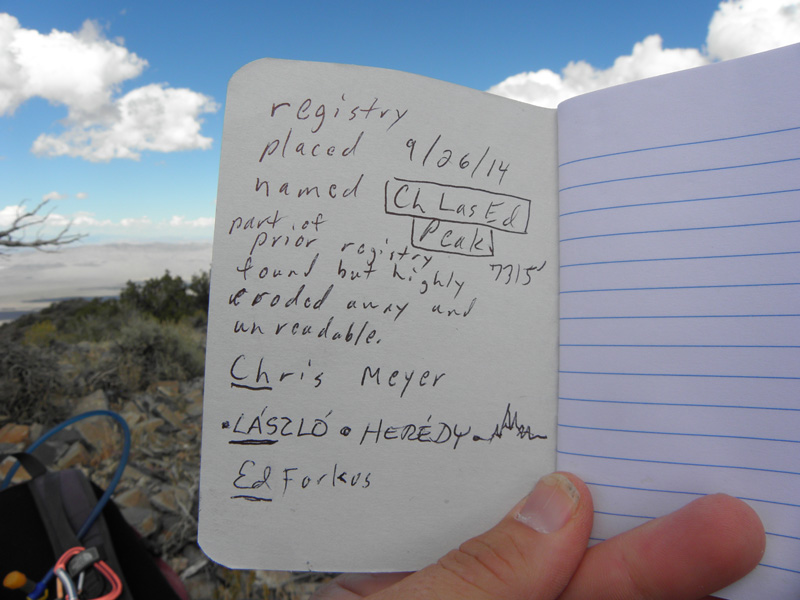 registry
placed 9/26/14
named Ch Las Ed
Peak
part of
prior registry 7315'
found but highly
eroded away and
unreadable.
Chris Meyer
•LÁSZLÓ • HERÉDY
Ed Forkos